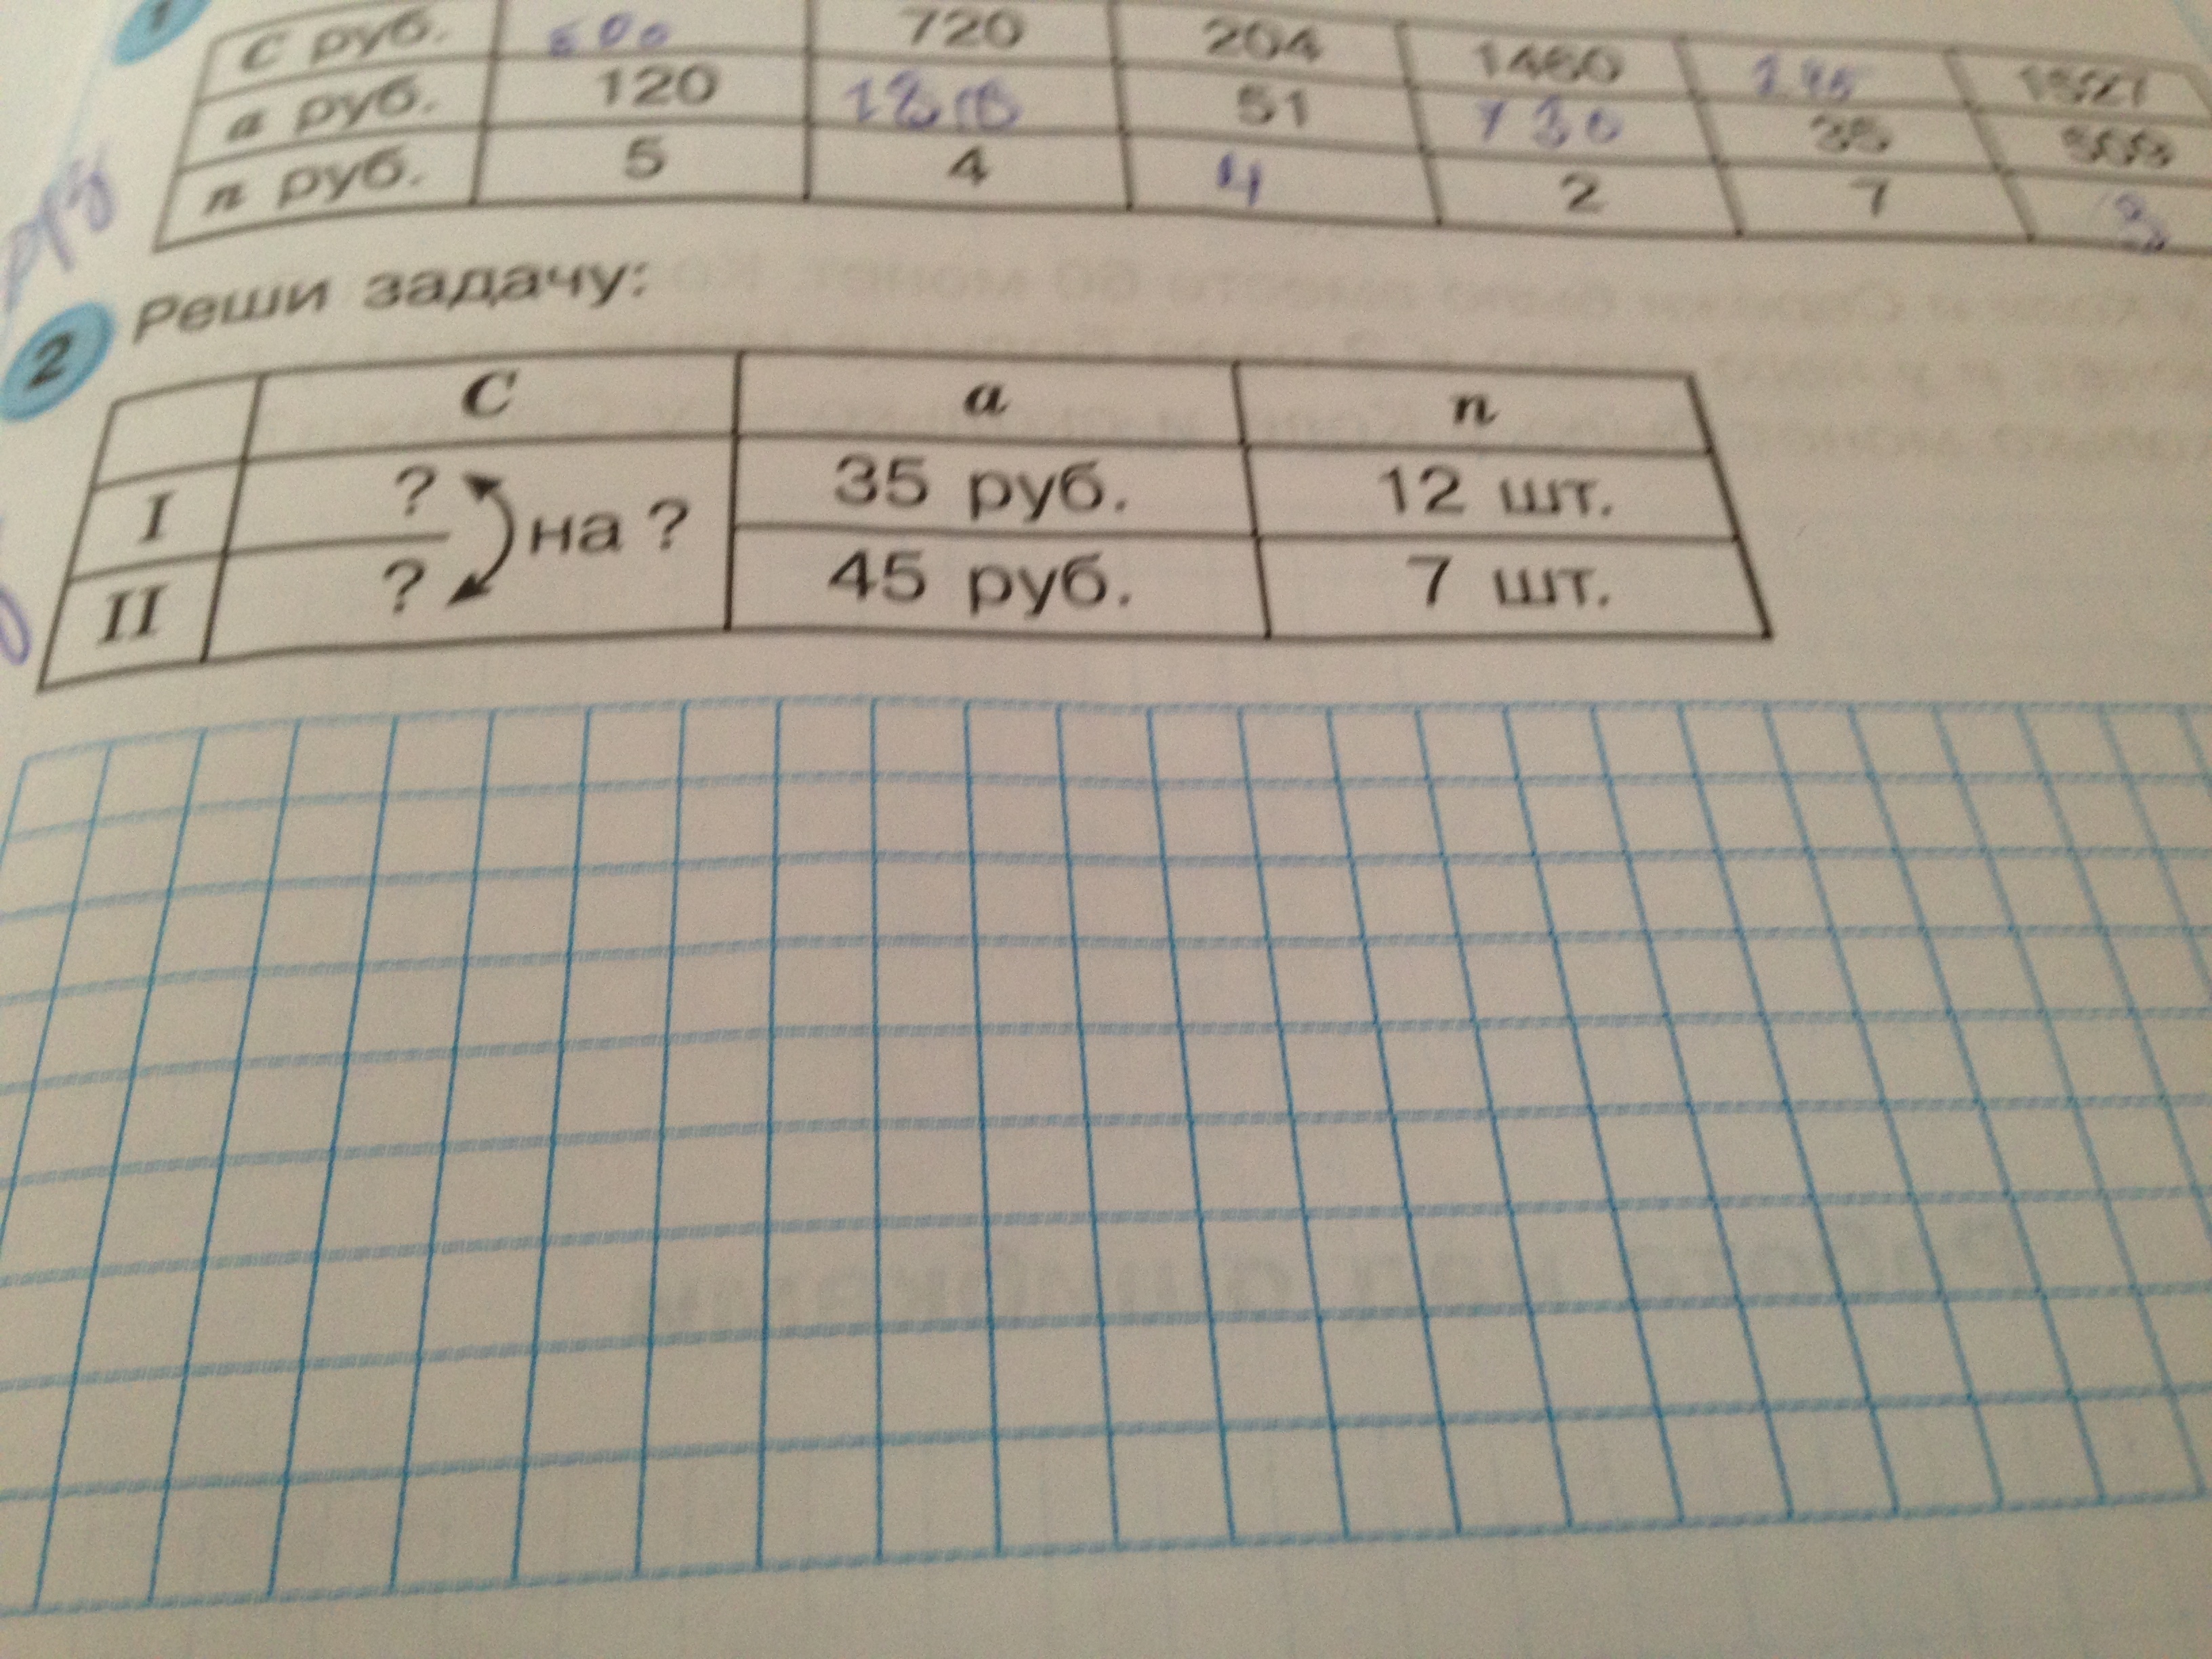 1
C руб. 600 720 204 1460 245 1527
a руб. 120 180 51 730 35 509
n руб. 5 4 4 2 7 3
2 Реши задачу:
C a n
I ? на ? 35 руб. 12 шт.
II ? 45 руб. 7 шт.
Работа над ошибками